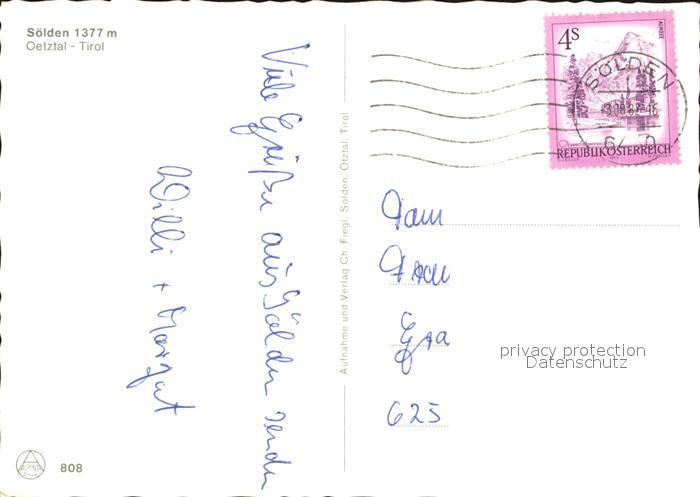 Sölden 1377 m
Oetztal - Tirol
Viele Grüße aus Sölden senden
Willi + Margat
Aufnahme und Verlag Ch. Fiegl, Sölden, Ötztal, Tirol
4s
ALMSEE
REPUBLIK ÖSTERREICH
SÖLDEN
Fam
Frau
625
privacy protection
Datenschutz
ALPINA
808